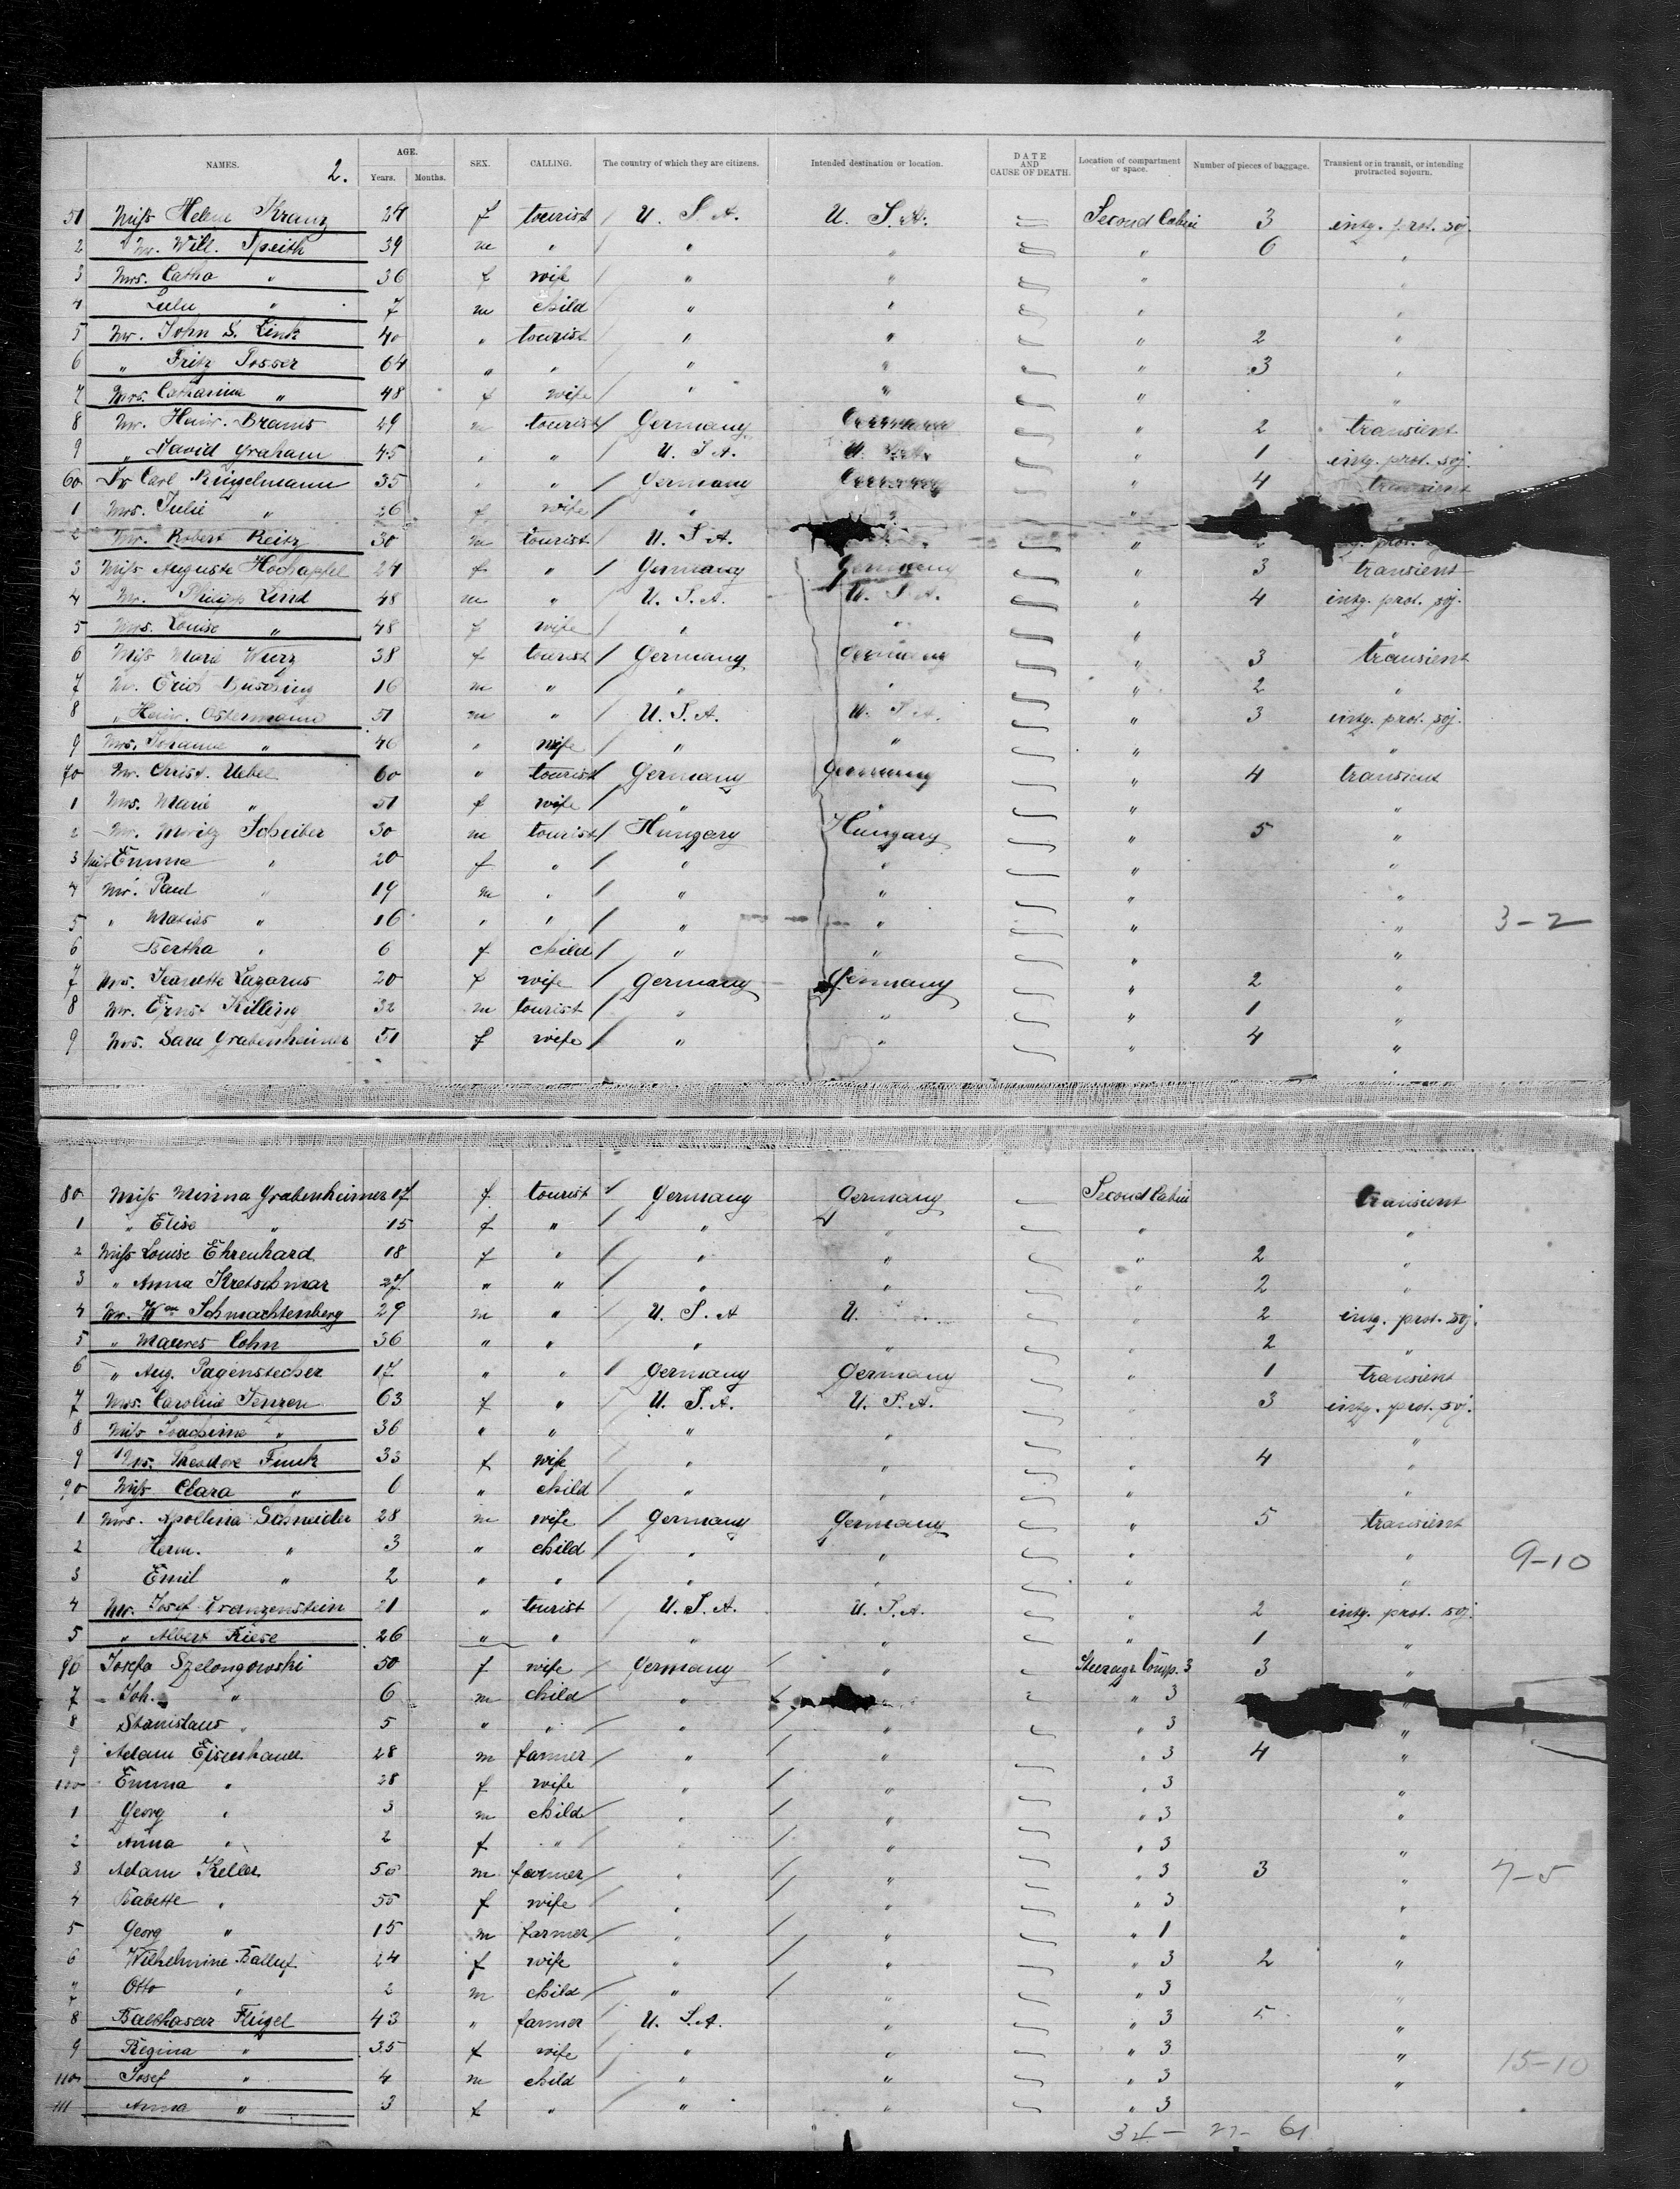 NAMES. 2. AGE. Years. Months. SEX. CALLING. The country of which they are citizens. Intended destination or location. DATE AND CAUSE OF DEATH. Location of compartment or space. Number of pieces of baggage. Transient or in transit, or intending protracted sojourn.
51 Miss Helene Kranz 24 f tourist U. S. A. U. S. A. Second Cabin 3 intg. prot. soj.
2 Mr. Will. Speith 39 m " / " " " 6 "
3 Mrs. Catha " 36 f wife " " " "
4 Lulu " 7 m child " " " "
5 Mr. John S. Link 40 " tourist " " " 2 "
6 " Fritz Posser 64 " " " " " 3 "
7 Mrs. Catharina " 48 f wife " " " "
8 Mr. Heinr. Brams 49 m tourist / Germany Germany " 2 transient
9 " David Graham 45 " " / U. S. A. U. S. A. " 1 intg. prot. soj.
60 Dr Carl Ringelmann 35 " " / Germany Germany " 4 transient
1 Mrs. Julie " 26 f wife / " " "
2 Mr. Robert Reitz 30 m tourist U. S. A. " prot.
3 Miss Auguste Hochapfel 24 f " / Germany Germany " 3 transient
4 Mr. Philipp Lind 48 m " U. S. A. U. S. A. " 4 intg. prot. soj.
5 Mrs. Louise " 48 f wife / " " " "
6 Miss Marie Wurz 38 f tourist / Germany Germany " 3 transient
7 Mr. Erich Büsching 16 m " / " " " 2 "
8 " Heinr. Ostermann 51 m " / U. S. A. U. S. A. " 3 intg. prot. soj.
9 Mrs. Johanna " 46 " wife / " " " "
70 Mr. Christ. Uebel 60 " tourist / Germany Germany " 4 transient
1 Mrs. Marie " 51 f wife / " " " "
2 Mr. Moritz Scheiber 30 m tourist / Hungary Hungary " 5 "
3 Miss Emma " 20 f " / " " " "
4 Mr. Paul " 19 m " / " " " "
5 " Matias " 16 " " / " " " " 3-2
6 Bertha " 6 f child / " " " "
7 Mrs. Jeanette Lazarus 20 f wife / Germany Germany " 2 "
8 Mr. Ernst Killing 32 m tourist / " " " 1 "
9 Mrs. Sara Grabenheimer 51 f wife / " " " 4 "
80 Miss Minna Grabenheimer 17 f tourist / Germany Germany Second Cabin transient
1 " Elise " 15 f " / " " " "
2 Miss Louise Ehrenhard 18 f " / " " " 2 "
3 " Anna Kretschmar 27 " " / " " " 2 "
4 Mr. Wm Schmachtenberg 29 m " U. S. A U. " 2 intg. prot. soj.
5 " Maures Cohn 36 " " " " " 2 "
6 " Aug. Pagenstecher 17 " " / Germany Germany " 1 transient
7 Mrs. Caroline Jenzen 63 f " U. S. A. U. S. A. " 3 intg. prot. soj.
8 Miss Joachime " 36 " " " " " "
9 Mrs. Theodore Funk 33 f wife " " " 4 "
90 Miss Clara " 6 " child " " " "
1 Mrs. Apollina Schneider 28 m wife / Germany Germany " 5 transient
2 Herm. " 3 " child / " " " " 9-10
3 Emil " 2 " " / " " " "
4 Mr. Josef Kranzenstein 21 " tourist U. S. A. U. S. A. " 2 intg. prot. soj.
5 " Albert Riese 26 " " " " " 1 "
96 Josefa Szelongowski 50 f wife / Germany / " Steerage Comp. 3 3 "
7 Joh. " 6 m child / " " 3 "
8 Stanislaus " 5 " " / " / " " 3 "
9 Adam Eisenhauer 28 m farmer / " / " " 3 4 "
100 Emma " 28 f wife " / " " 3 "
1 Georg " 3 m child / " / " " 3 "
2 Anna " 2 f " / " / " " 3 "
3 Adam Keller 50 m farmer / " / " " 3 3 " 7-5
4 Babette " 55 f wife / " / " " 3 "
5 Georg " 15 m farmer / " / " " 1 "
6 Wilhelmine Balluf 24 f wife " / " " 3 2 "
7 Otto " 2 m child / " / " " 3 "
8 Balthasar Flügel 43 " farmer U. S. A. " " 3 5 "
9 Regina " 35 f wife " " " 3 " 15-10
110 Josef " 4 m child " " " 3 "
111 Anna " 3 f " " " " 3
34 - 27- 61